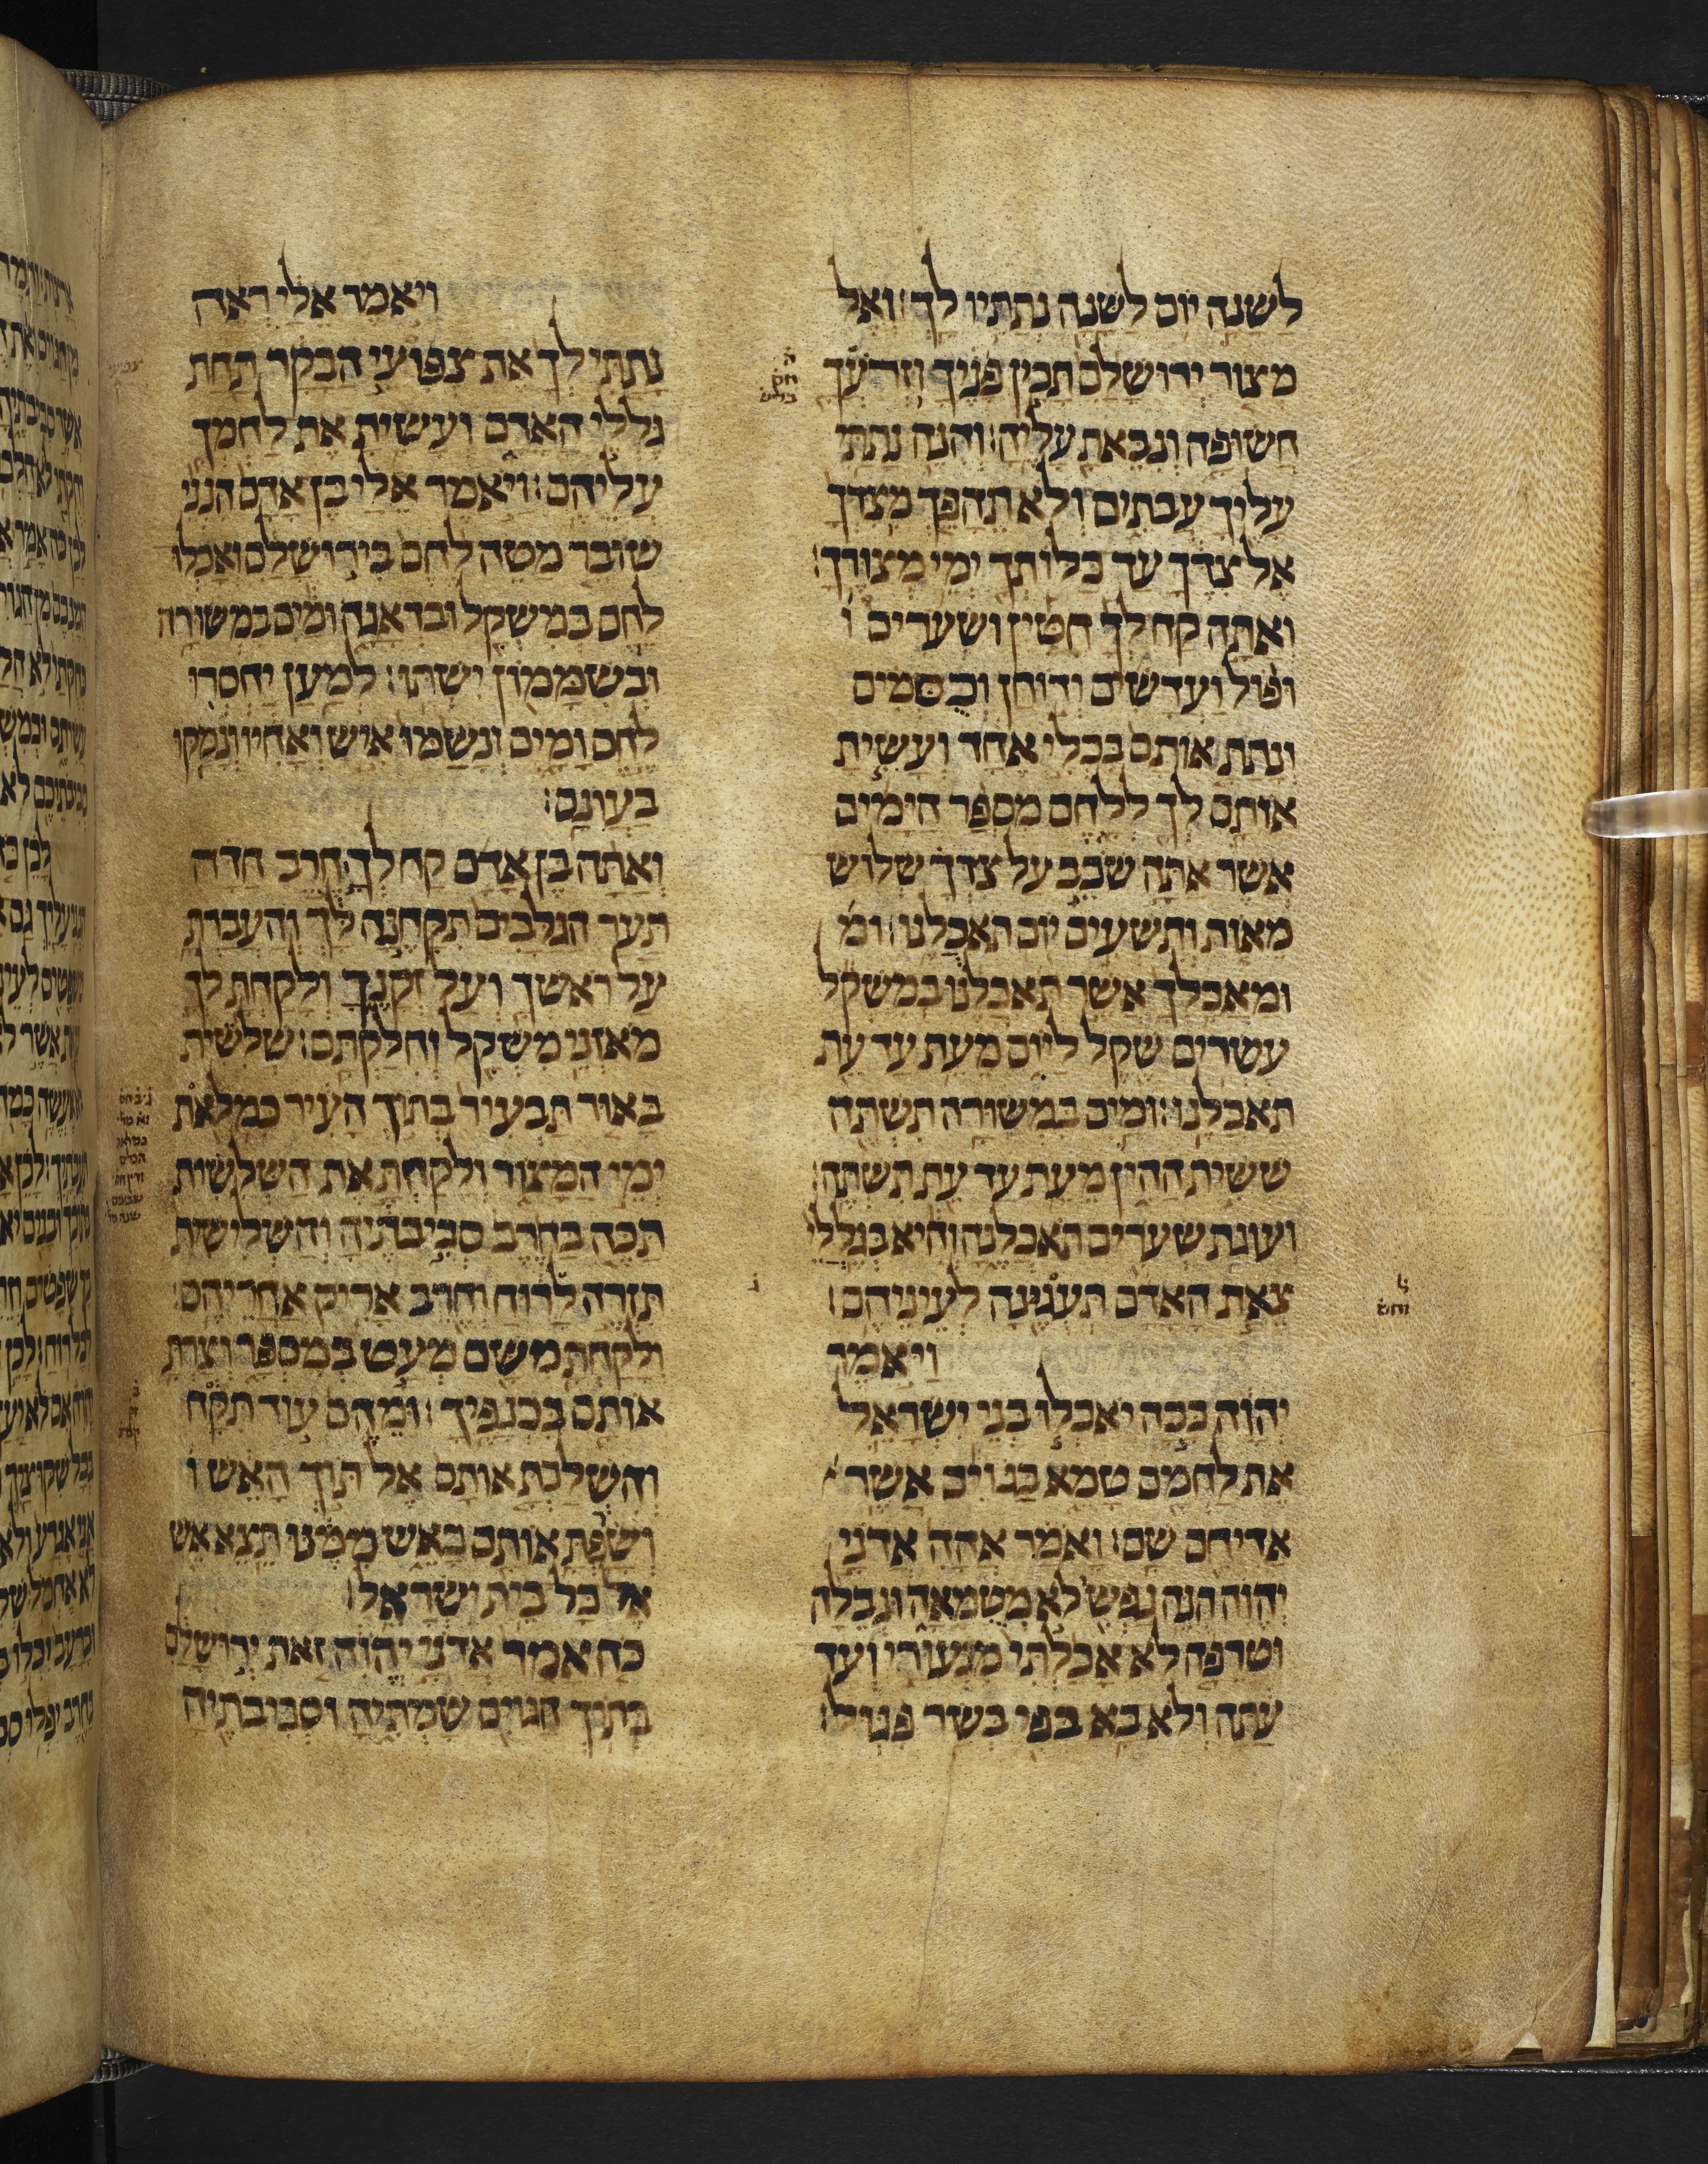 לשנה יום לשנה נתתיו לך׃ ואל
מצור ירושלם תכין פניך וזרעך
חשופה ונבאת עליה׃ והנה נתתי
עליך עבתים ולא תהפך מצדך
אל צדך עד כלותך ימי מצורך׃
ואתה קח לך חטין ושערים ו
ופול ועדשים ודוחן וכסמים
ונתת אותם בכלי אחד ועשית
אותם לך ללחם מספר הימים
אשר אתה שכב על צדך שלוש
מאות ותשעים יום תאכלנו׃ ומ
ומאכלך אשר תאכלנו במשקל
עשרים שקל ליום מעת עד עת
תאכלנו׃ ומים במשורה תשתה
ששית ההין מעת עד עת תשתה׃
ועוגת שערים תאכלנה והיא בגללי
צאת האדם תעגינה לעיניהם׃
ויאמר
יהוה ככה יאכלו בני ישראל
את לחמם טמא בגוים אשר
אדיחם שם׃ ואמר אהה אדני
יהוה הנה נפשי לא מטמאה ונבלה
וטרפה לא אכלתי מנעורי ועד
עתה ולא בא בפי בשר פגול׃
ויאמר אלי ראה
נתתי לך את צפועי הבקר תחת
גללי האדם ועשית את לחמך
עליהם׃ ויאמר אלי בן אדם הנני
שובר מטה לחם בירושלם ואכלו
לחם במשקל ובדאגה ומים במשורה
ובשממון ישתו׃ למען יחסרו
לחם ומים ונשמו איש ואחיו ונמקו
בעונם׃
ואתה בן אדם קח לך חרב חדה
תער הגלבים תקחנה לך והעברת
על ראשך ועל זקנך ולקחת לך
מאזני משקל וחלקתם׃ שלשית
באור תבעיר בתוך העיר כמלאת
ימי המצור ולקחת את השלשית
תכה בחרב סביבתיה והשלישית
תזרה לרוח וחרב אריק אחריהם׃
ולקחת משם מעט במספר וצרת
אותם בכנפיך׃ ומהם עוד תקח
והשלכת אותם אל תוך האש ו
ושרפת אותם באש ממנו תצא אש
אל כל בית ישראל׃
כה אמר אדני יהוה זאת ירושלם
בתוך הגוים שמתיה וסביבתיה